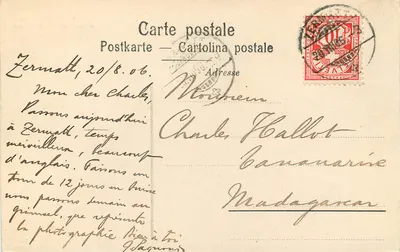 Carte postale
Postkarte — Cartolina postale
Adresse
Zermatt, 20/8.06.
Mon cher Charles,
Passons aujourd'hui
à Zermatt, temps
merveilleux, beaucoup
d'anglais. Faisons un
tour de 12 jours en Suisse
nous passons demain au
grimsel, que représente
la photographie Bien à toi
Monsieur
Charles Hallot
Tananarive
Madagascar
ZERMATT